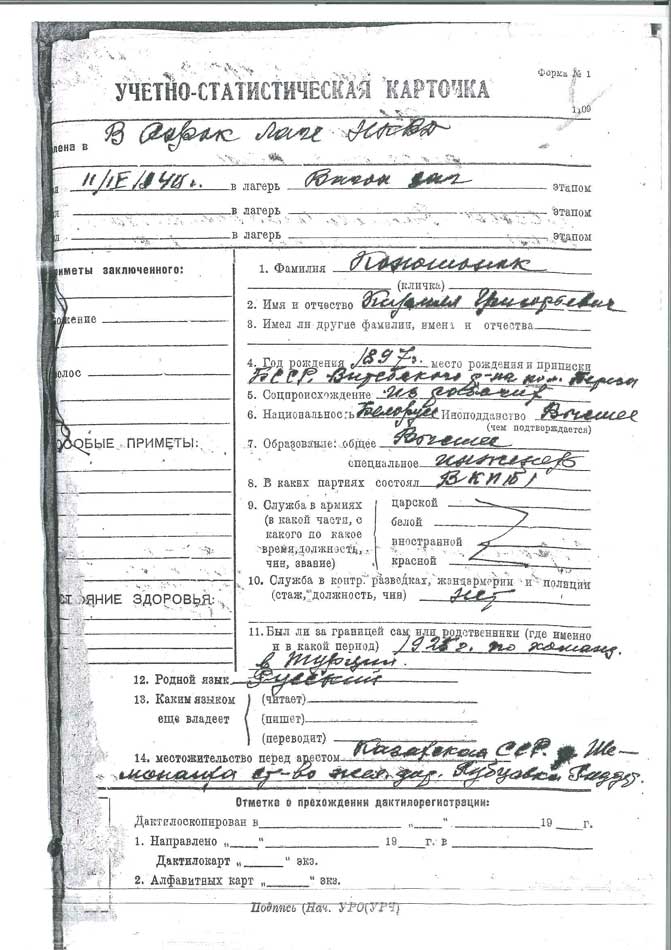 Форма № 1
УЧЕТНО-СТАТИСТИЧЕСКАЯ КАРТОЧКА
лена в В лаг НКВД
в лагерь этапом
в лагерь этапом
в лагерь этапом
иметы заключенного:
ожение
олос
ОСОБЫЕ ПРИМЕТЫ:
СТ ЯНИЕ ЗДОРОВЬЯ:
1. Фамилия
(кличка)
2. Имя и отчество Кирилл Григорьевич
3. Имел ли другие фамилии, имена и отчества
4. Год рождения 1897г. место рождения и приписки
БССР. Витебского р-на
5. Соцпроисхождение из рабочих
6. Национальность Белорус Иноподданство Высшее
(чем подтверждается)
7. Образование: общее Высшее
специальное инженер
8. В каких партиях состоял ВКП(б)
9. Служба в армиях
(в какой части, с
какого по какое
время, должность,
чин, звание)
царской
белой
иностранной
красной
10. Служба в контр. разведках, жандармерии и полиции
(стаж, должность, чин) нет
11. Был ли за границей сам или родственники (где именно
и в какой период) 1925г. по команд.
в Турции.
12. Родной язык Русский
13. Каким языком
еще владеет
(читает)
(пишет)
(переводит)
14. местожительство перед арестом Казахская ССР. Ше-
монаиха ст-во жел. дор.
Отметка о прохождении дактилорегистрации:
Дактилоскопирован в „ “ 19 г.
1. Направлено „ “ 19 г. в
Дактилокарт „ “ экз.
2. Алфавитных карт „ “ экз.
Подпись (Нач. УРО(УРЧ)